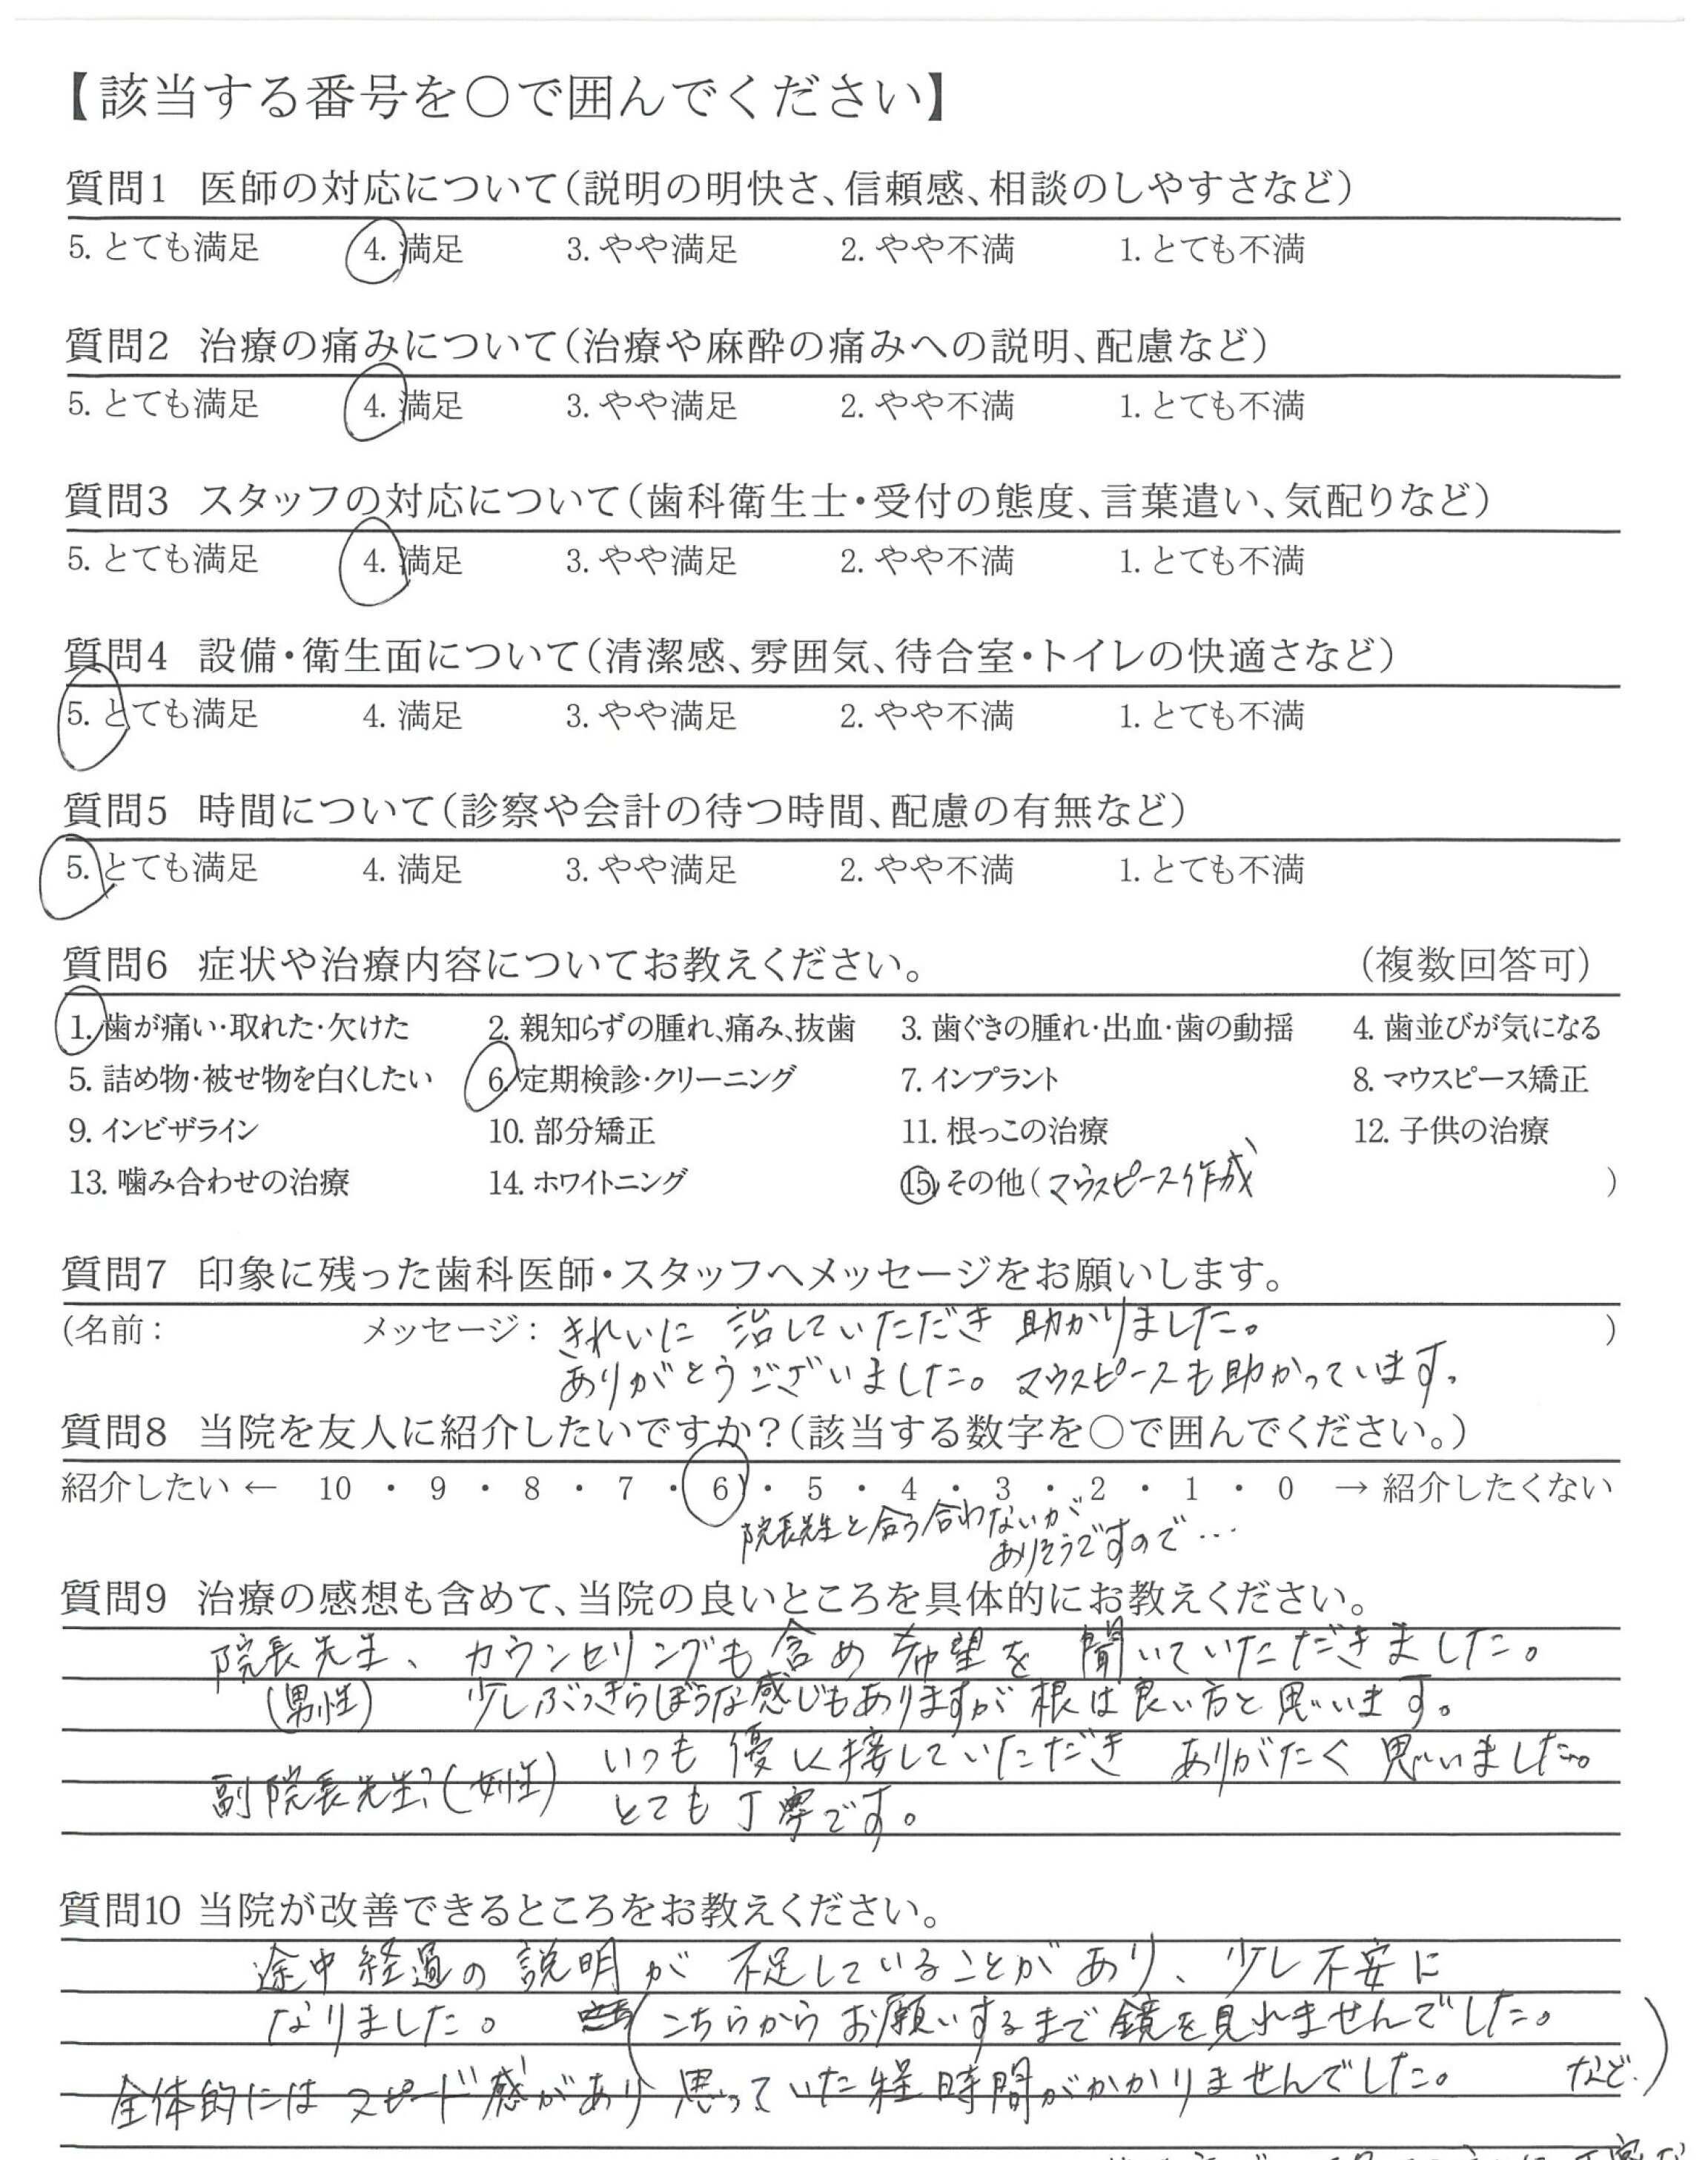 【該当する番号を〇で囲んでください】
質問1 医師の対応について（説明の明快さ、信頼感、相談のしやすさなど）
5. とても満足 4. 満足 3. やや満足 2. やや不満 1. とても不満
質問2 治療の痛みについて（治療や麻酔の痛みへの説明、配慮など）
5. とても満足 4. 満足 3. やや満足 2. やや不満 1. とても不満
質問3 スタッフの対応について（歯科衛生士・受付の態度、言葉遣い、気配りなど）
5. とても満足 4. 満足 3. やや満足 2. やや不満 1. とても不満
質問4 設備・衛生面について（清潔感、雰囲気、待合室・トイレの快適さなど）
5. とても満足 4. 満足 3. やや満足 2. やや不満 1. とても不満
質問5 時間について（診察や会計の待つ時間、配慮の有無など）
5. とても満足 4. 満足 3. やや満足 2. やや不満 1. とても不満
質問6 症状や治療内容についてお教えください。 （複数回答可）
1. 歯が痛い・取れた・欠けた 2. 親知らずの腫れ、痛み、抜歯 3. 歯ぐきの腫れ・出血・歯の動揺 4. 歯並びが気になる
5. 詰め物・被せ物を白くしたい 6. 定期検診・クリーニング 7. インプラント 8. マウスピース矯正
9. インビザライン 10. 部分矯正 11. 根っこの治療 12. 子供の治療
13. 噛み合わせの治療 14. ホワイトニング 15. その他（マウスピース作成 ）
質問7 印象に残った歯科医師・スタッフへメッセージをお願いします。
（名前： メッセージ：きれいに 治していただき 助かりました。 ）
ありがとうございました。マウスピースも助かっています。
質問8 当院を友人に紹介したいですか？（該当する数字を〇で囲んでください。）
紹介したい ← 10 ・ 9 ・ 8 ・ 7 ・ 6 ・ 5 ・ 4 ・ 3 ・ 2 ・ 1 ・ 0 → 紹介したくない
院長先生と合う合わないが
ありそうですので…
質問9 治療の感想も含めて、当院の良いところを具体的にお教えください。
院長先生、カウンセリングも含め 希望を 聞いていただきました。
（男性） 少しぶっきらぼうな感じもありますが根は良い方と思います。
いつも 優しく接していただき ありがたく 思いました。
副院長先生？（女性） とても丁寧です。
質問10 当院が改善できるところをお教えください。
途中経過の説明が 不足していることがあり、少し不安に
なりました。 （こちらからお願いするまで鏡を見れませんでした。
など.）
全体的には スピード感があり 思っていた程時間がかかりませんでした。